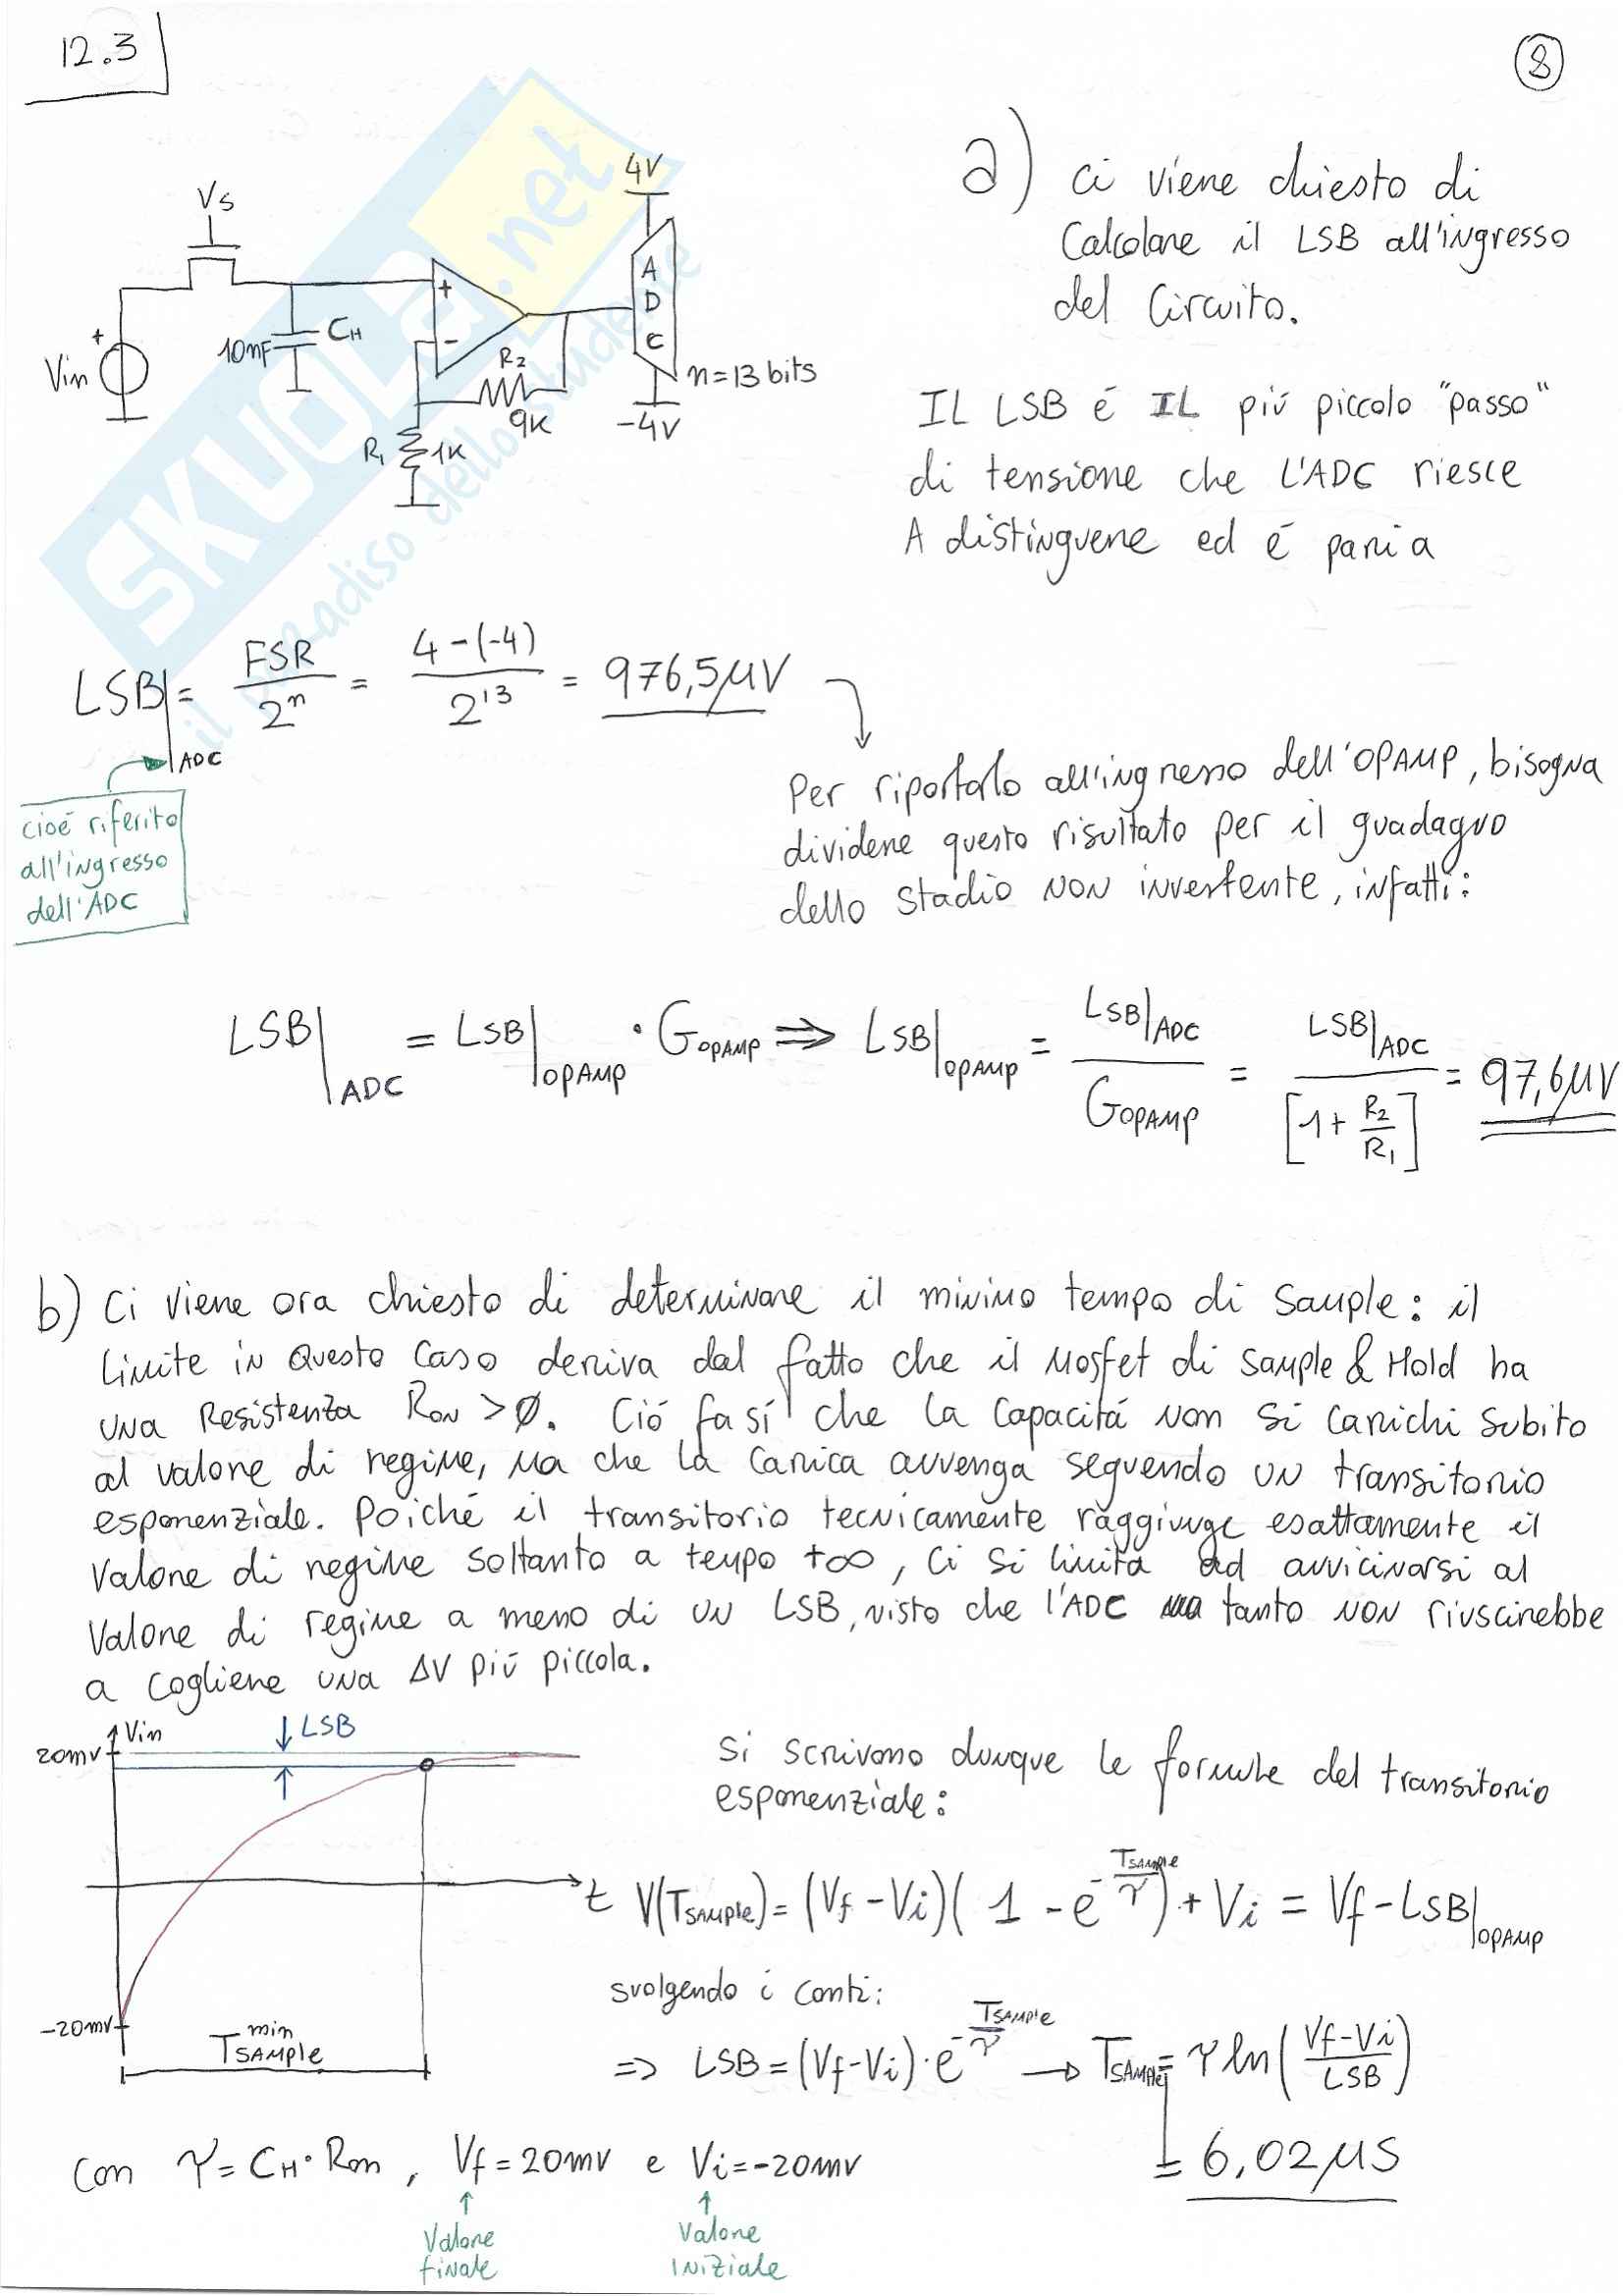 12.3
8
Vs
4V
+
Vin
10nF
CH
+
-
R2
9K
R1
1K
A
D
C
n=13 bits
-4V
a) Ci viene chiesto di
Calcolare il LSB all'ingresso
del Circuito.
IL LSB é IL piú piccolo "passo"
di tensione che L'ADC riesce
A distinguere ed é pari a
LSB|ADC = FSR/2^n = 4-(-4)/2^13 = 976,5μV
cioé riferito
all'ingresso
dell'ADC
Per riportarlo all'ingresso dell'OPAMP, bisogna
dividere questo risultato per il guadagno
dello stadio NON invertente, infatti:
LSB|ADC = LSB|OPAMP · GOPAMP ⇒ LSB|OPAMP = LSB|ADC/GOPAMP = LSB|ADC/[1+R2/R1] = 97,6μV
b) Ci viene ora chiesto di determinare il minimo tempo di Sample: il
limite in questo caso deriva dal fatto che il Mosfet di Sample & Hold ha
una Resistenza RON >Ø. Ció fa sí che la capacitá non si carichi subito
al valore di regime, ma che la carica avvenga seguendo un transitorio
esponenziale. Poiché il transitorio tecnicamente raggiunge esattamente il
valore di regime soltanto a tempo +∞, ci si limita ad avvicinarsi al
valore di regime a meno di un LSB, visto che l'ADC tanto NON riuscirebbe
a cogliere una ΔV piú piccola.
Vin
LSB
20mV
t
-20mV
T SAMPLE min
Si scrivono dunque le formule del transitorio
esponenziale:
V(TSAMPLE) = (Vf - Vi)(1 - e^-TSAMPLE/τ) + Vi = Vf - LSB|OPAMP
svolgendo i conti:
=> LSB = (Vf-Vi)·e^-TSAMPLE/τ → TSAMPLE = τ ln(Vf-Vi/LSB)
= 6,02μS
con τ = CH·Ron, Vf = 20mV e Vi = -20mV
↑
Valore
finale
↑
Valore
INIZIALE
SKUOLA.net
il paradiso dello studente